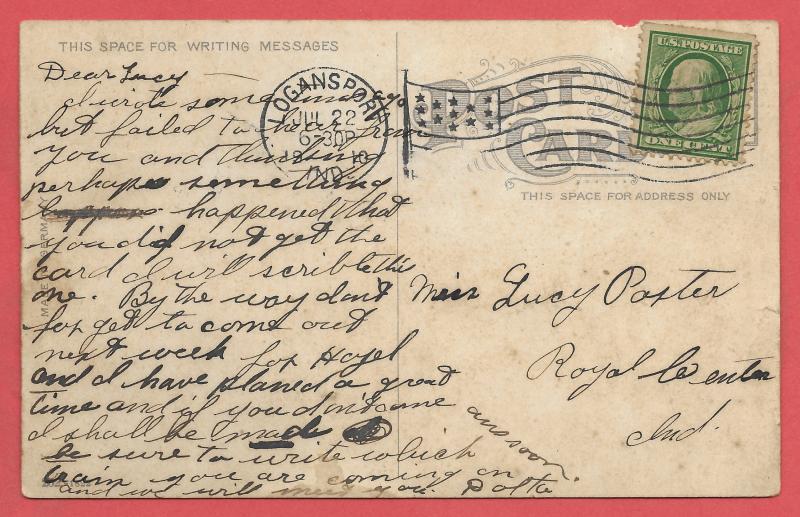 THIS SPACE FOR WRITING MESSAGES
Dear Lucy
I wrote some time ago
but failed to hear from
you and thinking
perhaps something
happened that
you did not get the
card I will scribble this
one. By the way don't
forget to come out
next week for Hazel
and I have planed a great
time and if you don't come
I shall be mad
be sure to write which
train you are coming on
and we will meet you.
ans soon.
MADE IN GERMANY
LOGANSPORT
JUL 22
6-30P
1910
IND.
POST
CARD
U.S. POSTAGE
ONE CENT
THIS SPACE FOR ADDRESS ONLY
Miss Lucy Porter
Royal Center
Ind.